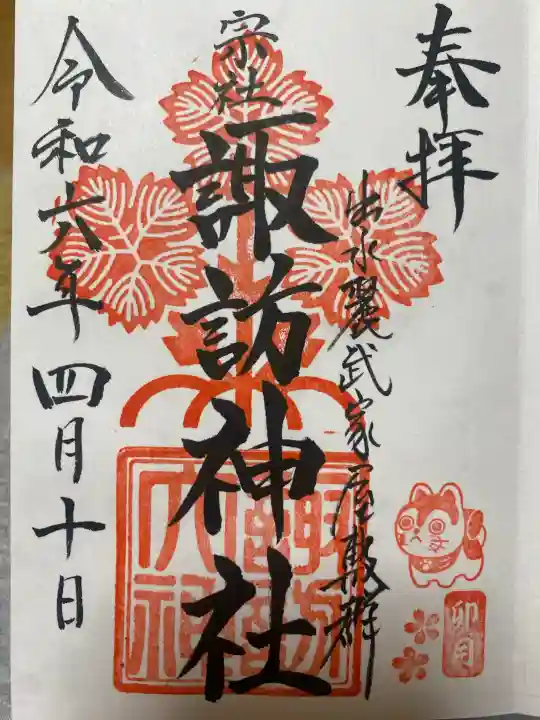 奉拝
出水麓武家屋敷群
宗社
諏訪神社
令和六年四月十日
諏訪大神
卯月